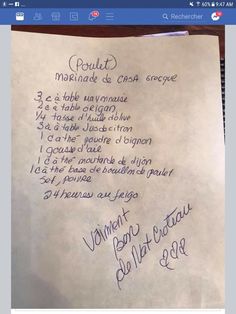 60% 9:47 AM
Rechercher
(Poulet)
marinade de CASA Grecque
3 c à table mayonnaise
2 c à table origan
1/4 tasse d'huile d'olive
3 c à table Jus de citron
1 c a thé poudre d'oignon
1 gousse d'ail
1 c à thé moutarde de dijon
1 c à thé base de bouillon de poulet
Sel, poivre
24 heures au frigo
Vraiment
Bon
de Nat Croteau